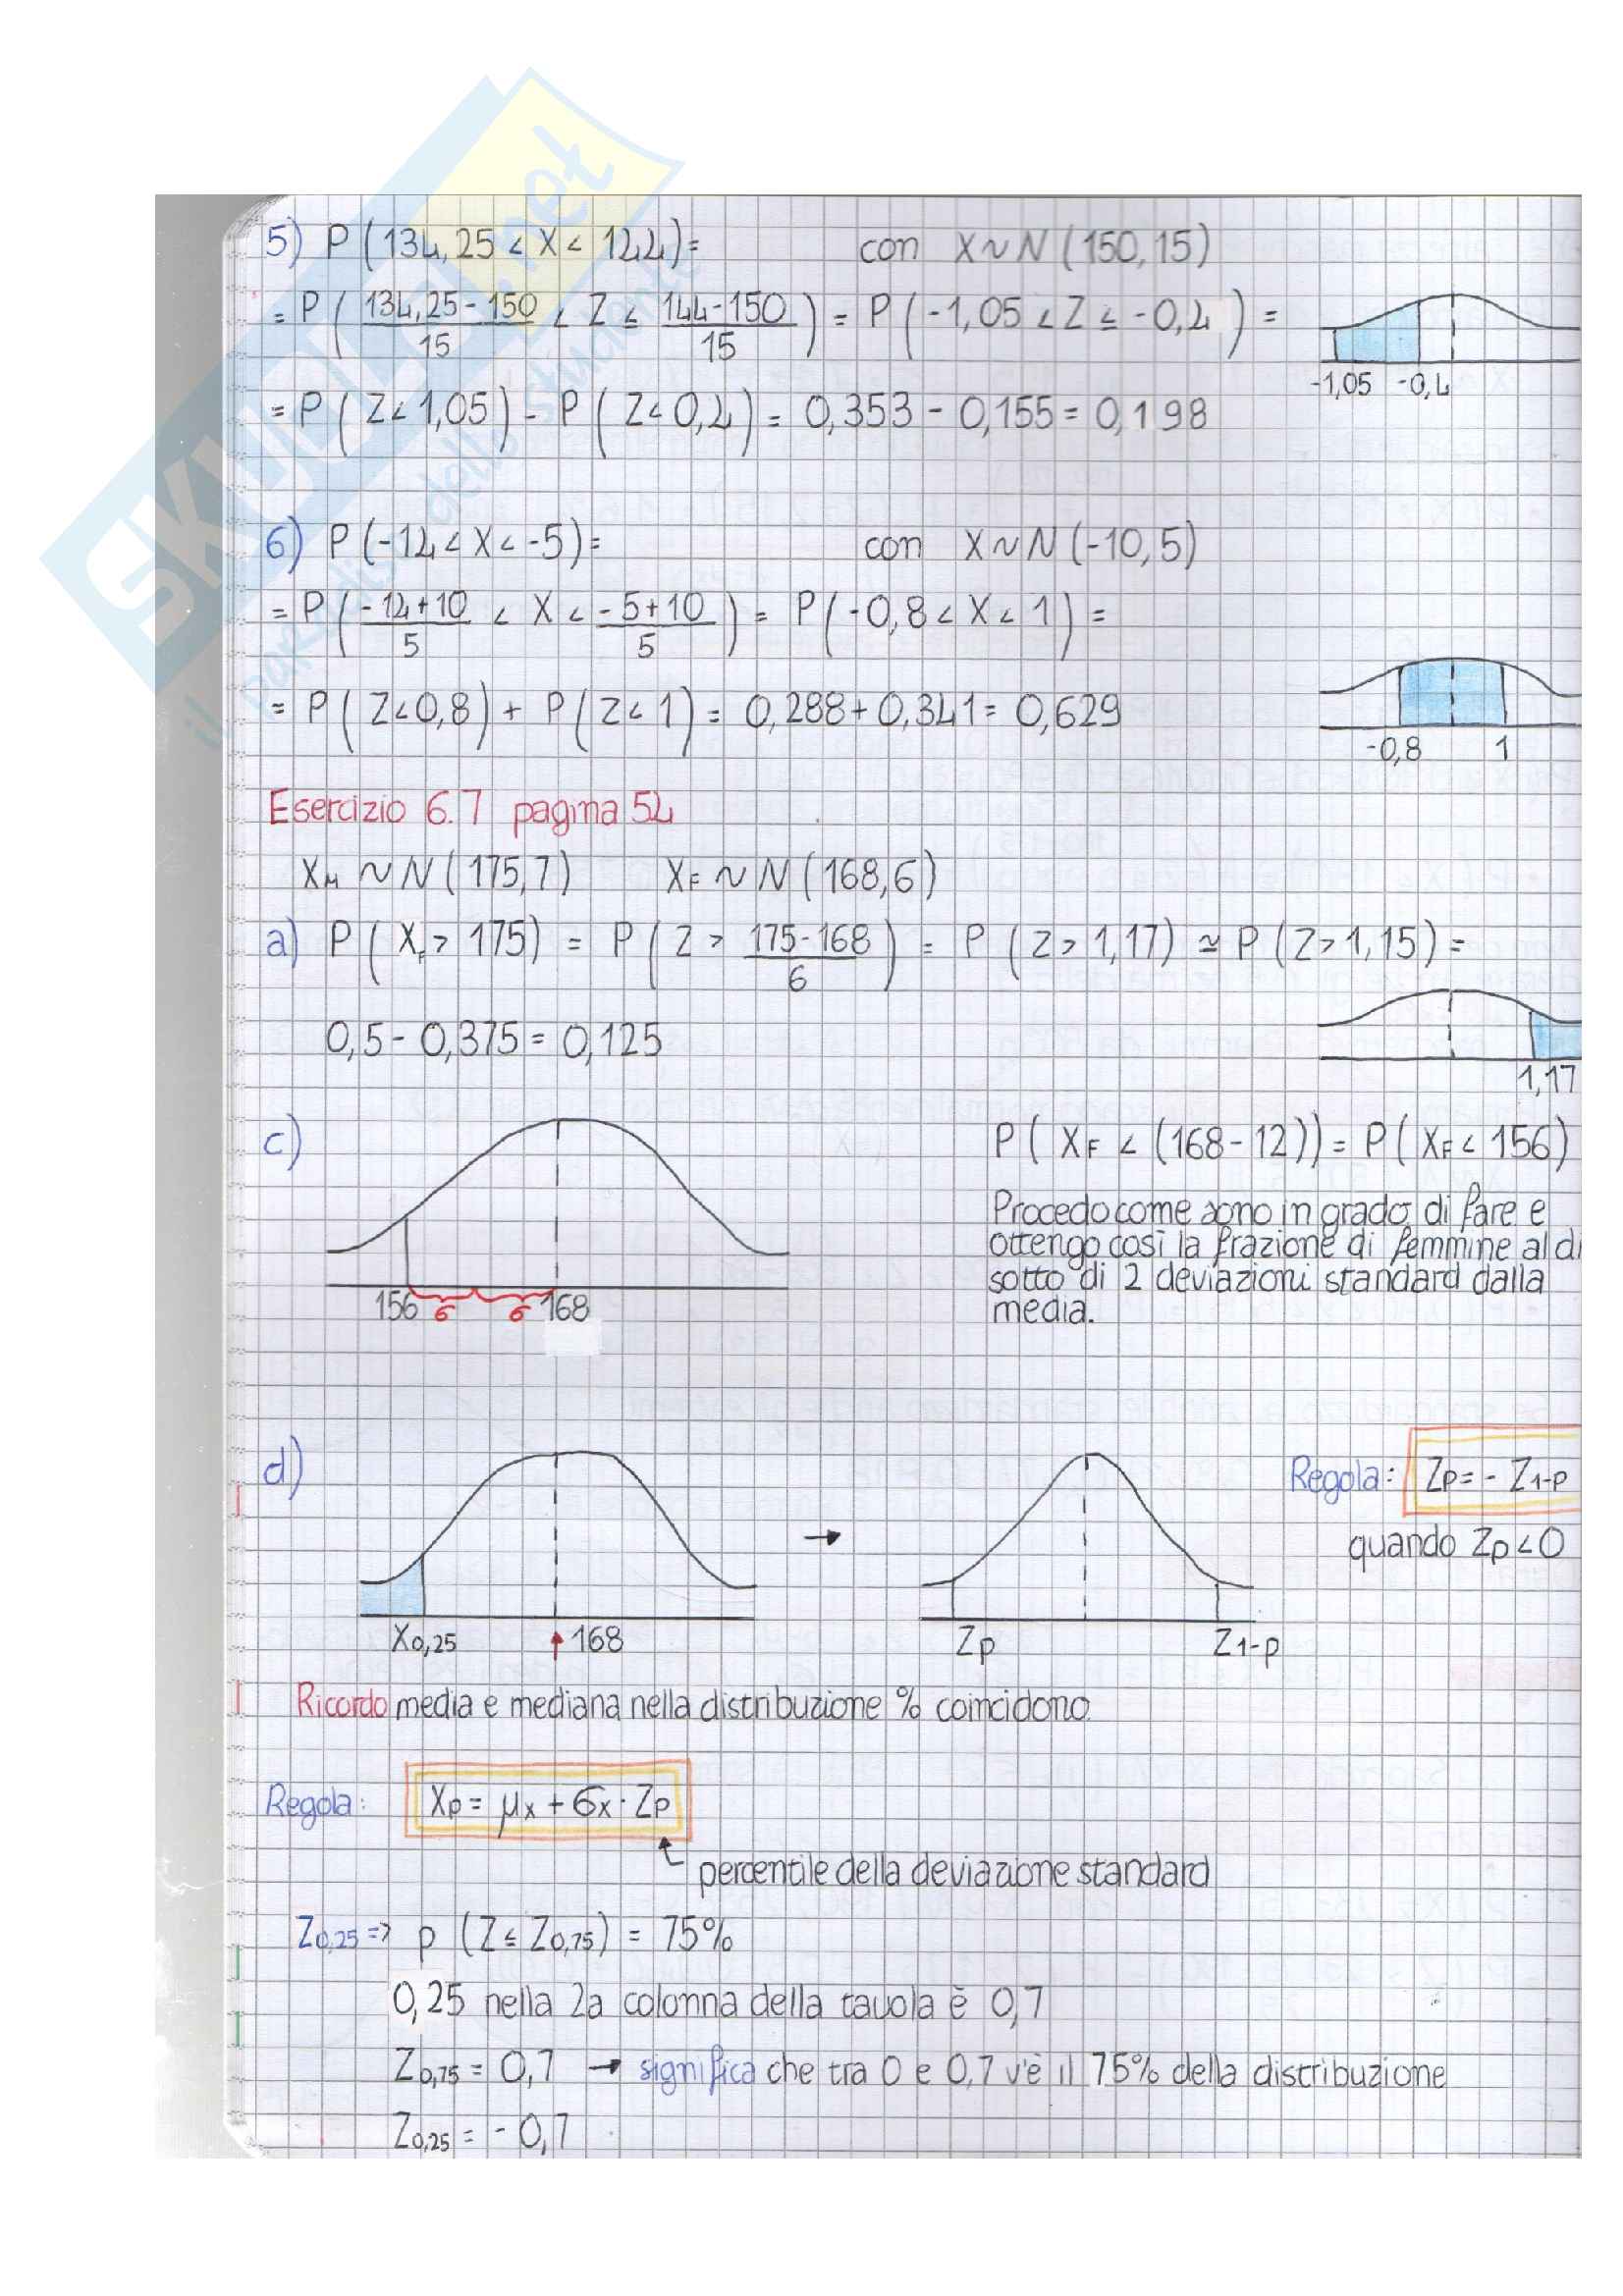 SKUOLA.net
il paradiso dello studente
5) P(134,25 < X < 144) = con X ~ N(150,15)
= P((134,25-150)/15 < Z ≤ (144-150)/15) = P(-1,05 < Z ≤ -0,4) =
-1,05 -0,4
= P(Z < 1,05) - P(Z < 0,4) = 0,353 - 0,155 = 0,198
6) P(-14 < X < -5) = con X ~ N(-10,5)
= P((-14+10)/5 < X < (-5+10)/5) = P(-0,8 < X < 1) =
= P(Z < 0,8) + P(Z < 1) = 0,288 + 0,341 = 0,629
-0,8 1
Esercizio 6.7 pagina 54
XM ~ N(175,7) XF ~ N(168,6)
a) P(XF > 175) = P(Z > (175-168)/6) = P(Z > 1,17) ≃ P(Z > 1,15) =
0,5 - 0,375 = 0,125
1,17
c) P(XF < (168-12)) = P(XF < 156)
Procedo come sono in grado di fare e
ottengo così la frazione di femmine al di
sotto di 2 deviazioni standard dalla
media.
156 σ σ 168
d) Regola: Zp = - Z1-p
quando Zp < 0
X0,25 168 Zp Z1-p
Ricordo media e mediana nella distribuzione % coincidono
Regola: Xp = μx + σx · Zp
percentile della deviazione standard
Z0,25 => p (Z ≤ Z0,75) = 75%
0,25 nella 2a colonna della tavola è 0,7
Z0,75 = 0,7 → significa che tra 0 e 0,7 v'è il 75% della distribuzione
Z0,25 = - 0,7